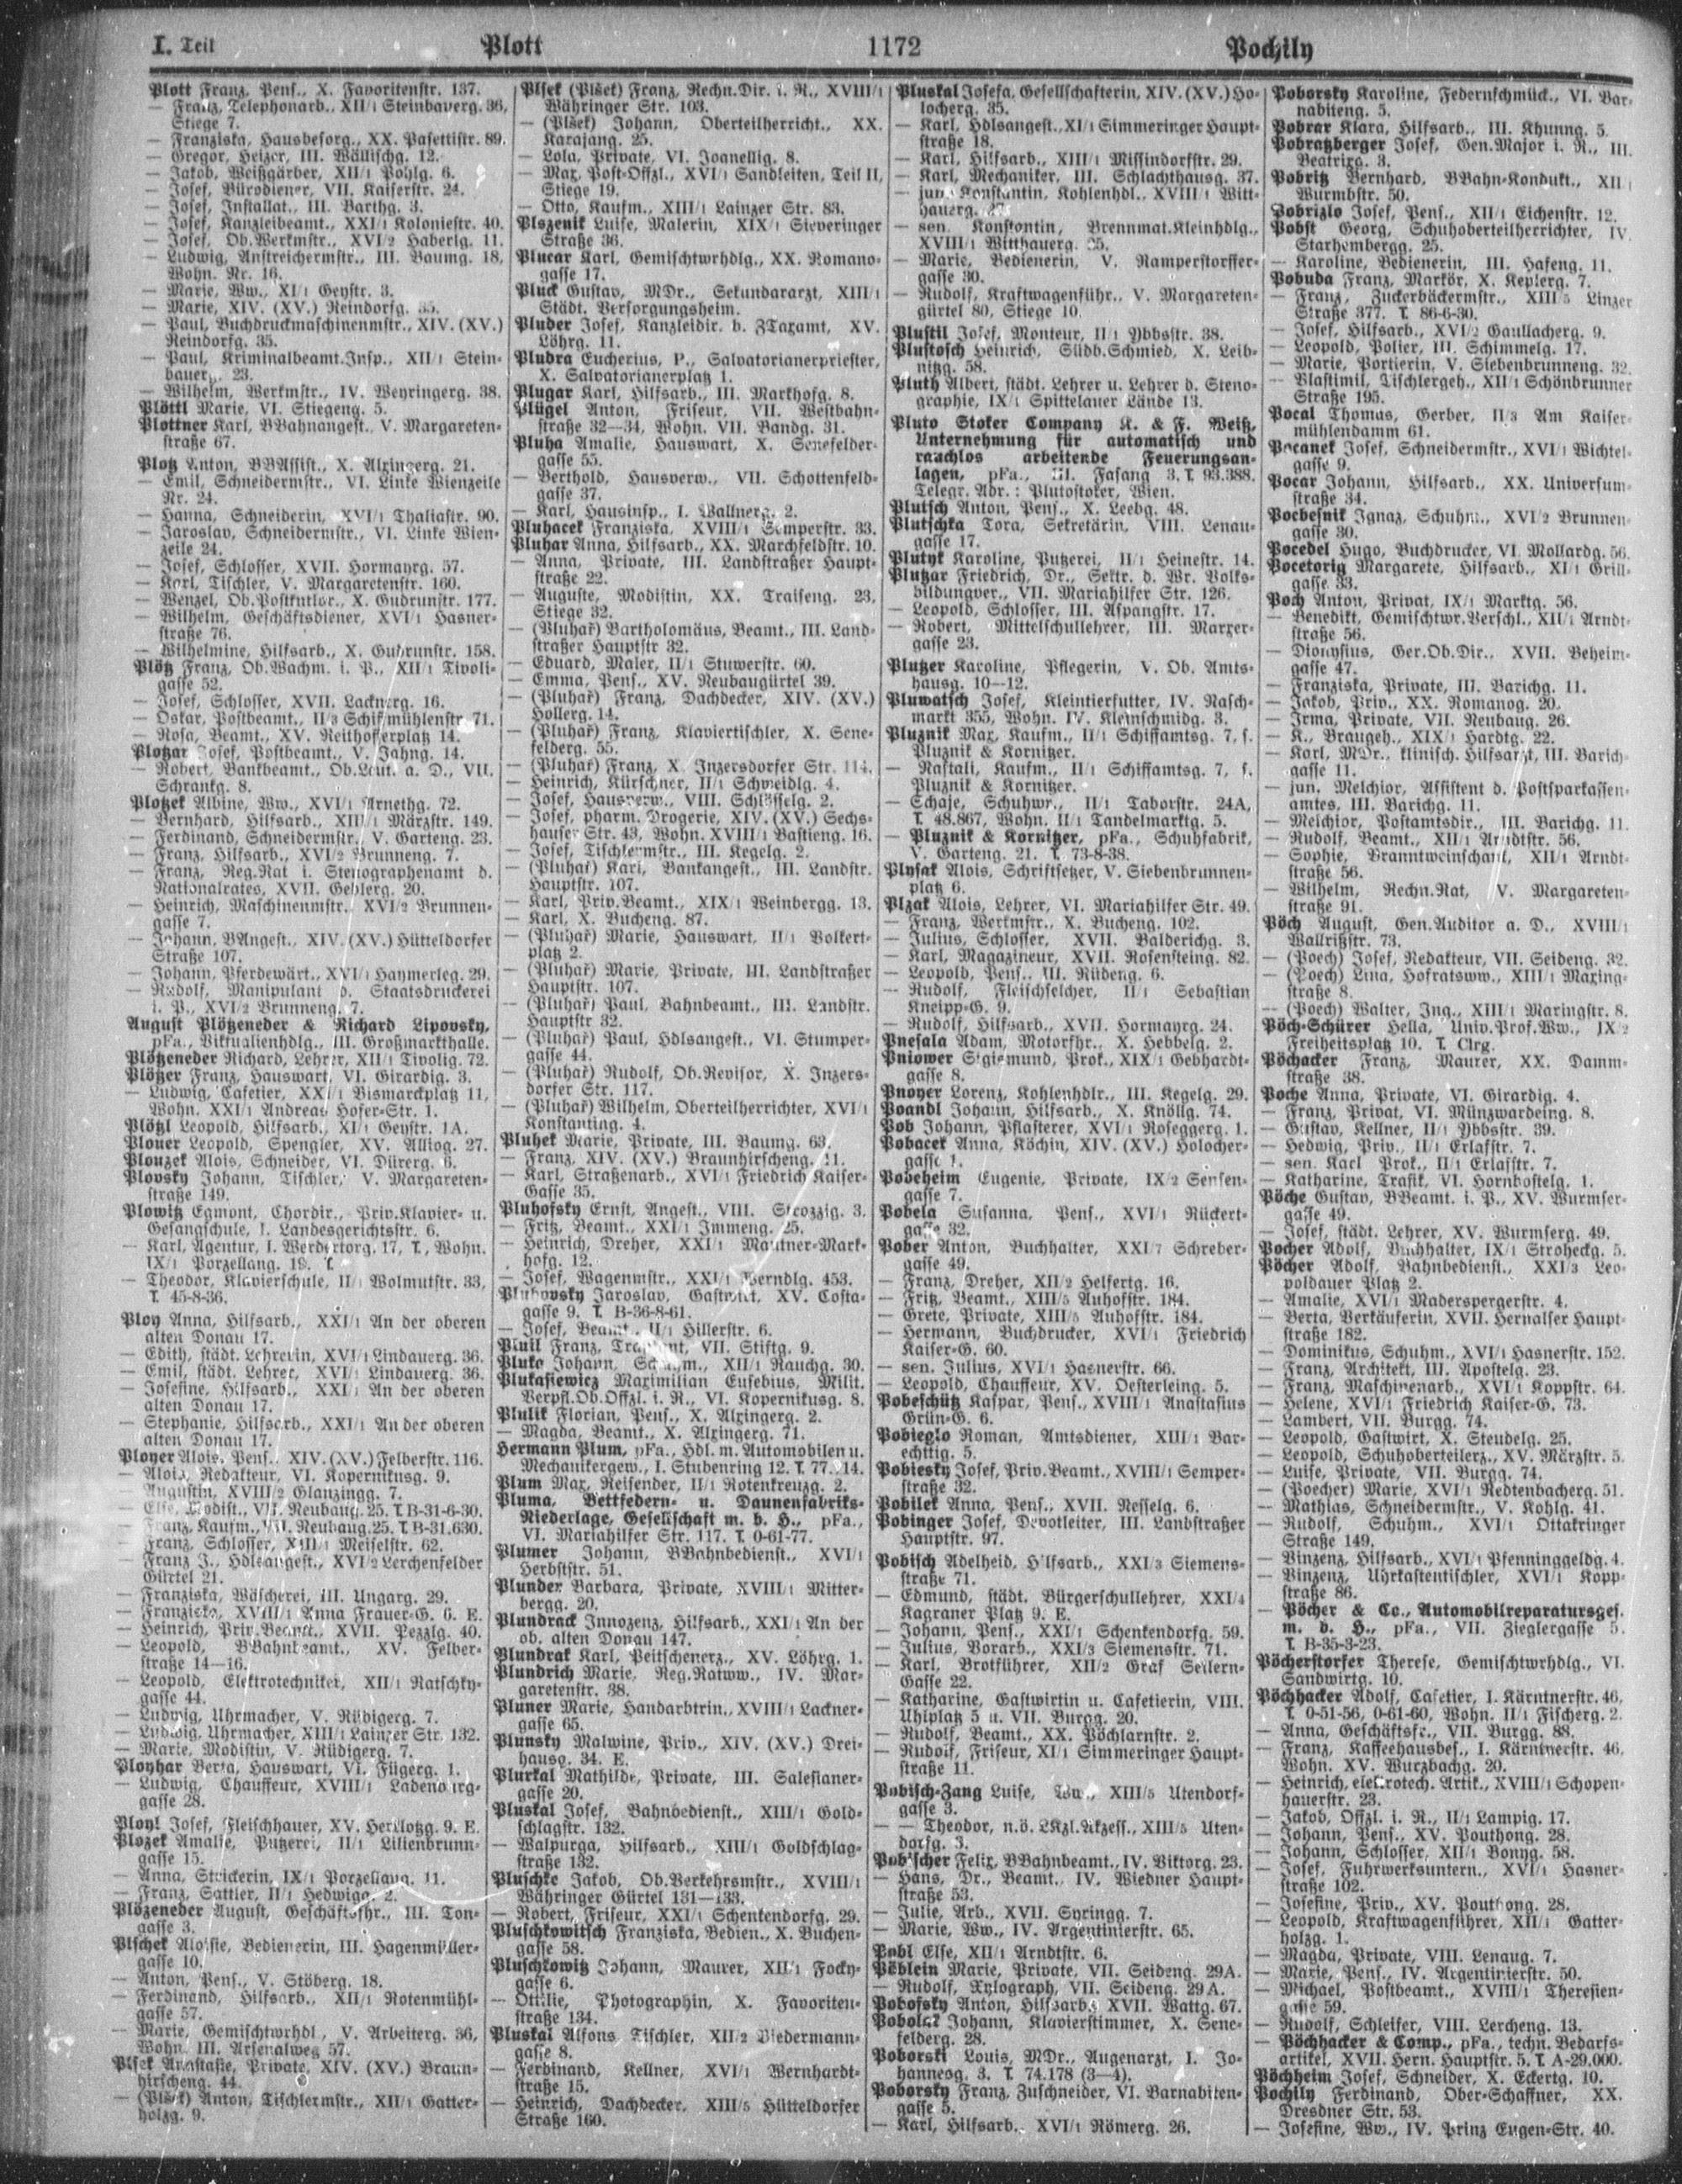 I. Teil
Plott
1172
Pochily
Plott Franz, Pens., X. Favoritenstr. 137.
— Franz, Telephonarb., XII/1 Steinbauerg. 36,
Stiege 7.
— Franziska, Hausbesorg., XX. Pasettistr. 89.
— Gregor, Heizer, III. Wällischg. 12.
— Jakob, Weißgärber, XII/1 Pohlg. 6.
— Josef, Bürodiener, VII. Kaiserstr. 24.
— Josef, Installat., III. Barthg. 3.
— Josef, Kanzleibeamt., XXI/1 Koloniestr. 40.
— Josef, Ob.Werkmstr., XVI/2 Haberlg. 11.
— Ludwig, Anstreichermstr., III. Baumg. 18,
Wohn. Nr. 16.
— Marie, Ww., XI/1 Geystr. 3.
— Marie, XIV. (XV.) Reindorfg. 35.
— Paul, Buchdruckmaschinenmstr., XIV. (XV.)
Reindorfg. 35.
— Paul, Kriminalbeamt.Insp., XII/1 Stein-
bauerg. 23.
— Wilhelm, Werkmstr., IV. Weyringerg. 38.
Plöttl Marie, VI. Stiegeng. 5.
Plottner Karl, BBahnangest., V. Margareten-
straße 67.
Plotz Anton, BBAssist., X. Alxingerg. 21.
— Emil, Schneidermstr., VI. Linke Wienzeile
Nr. 24.
— Hanna, Schneiderin, XVI/1 Thaliastr. 90.
— Jaroslav, Schneidermstr., VI. Linke Wien-
zeile 24.
— Josef, Schlosser, XVII. Hormayrg. 57.
— Karl, Tischler, V. Margaretenstr. 160.
— Wenzel, Ob.Postkutlor., X. Gudrunstr. 177.
— Wilhelm, Geschäftsdiener, XVI/1 Hasner-
straße 76.
— Wilhelmine, Hilfsarb., X. Gudrunstr. 158.
Plötz Franz, Ob.Wachm. i. P., XII/1 Tivoli-
gasse 52.
— Josef, Schlosser, XVII. Lacknerg. 16.
— Oskar, Postbeamt., II/3 Schiffmühlenstr. 71.
— Rosa, Beamt., XV. Reithofferplatz 14.
Plotzar Josef, Postbeamt., V. Jahng. 14.
— Robert, Bankbeamt., Ob.Leut. a. D., VII.
Schrankg. 8.
Plotzek Albine, Ww., XVI/1 Arnethg. 72.
— Bernhard, Hilfsarb., XIII/1 Märzstr. 149.
— Ferdinand, Schneidermstr., V. Garteng. 23.
— Franz, Hilfsarb., XVI/2 Brunneng. 7.
— Franz, Reg.Rat i. Stenographenamt d.
Nationalrates, XVII. Geblerg. 20.
— Heinrich, Maschinenmstr., XVI/2 Brunnen-
gasse 7.
— Johann, BAngest., XIV. (XV.) Hütteldorfer
Straße 107.
— Johann, Pferdewärt., XVI/1 Haymerleg. 29.
— Rudolf, Manipulant d. Staatsdruckerei
i. P., XVI/2 Brunneng. 7.
August Plötzeneder & Richard Lipovsky,
pFa., Viktualienhdlg., III. Großmarkthalle.
Plötzeneder Richard, Lehrer, XII/1 Tivolig. 72.
Plötzer Franz, Hauswart, VI. Girardig. 3.
— Ludwig, Cafetier, XXI/1 Bismarckplatz 11,
Wohn. XXI/1 Andreas Hofer-Str. 1.
Plötzl Leopold, Hilfsarb., XI/1 Geystr. 1A.
Plouer Leopold, Spengler, XV. Alliog. 27.
Plouzek Alois, Schneider, VI. Dürerg. 6.
Plovsky Johann, Tischler, V. Margareten-
straße 149.
Plowitz Egmont, Chordir., Priv.Klavier- u.
Gesangschule, I. Landesgerichtsstr. 6.
— Karl, Agentur, I. Werdertorg. 17, T., Wohn.
IX/1 Porzellang. 19. T.
— Theodor, Klavierschule, II/1 Wolmutstr. 33,
T. 45-8-36.
Ploy Anna, Hilfsarb., XXI/1 An der oberen
alten Donau 17.
— Edith, städt. Lehrerin, XVI/1 Lindauerg. 36.
— Emil, städt. Lehrer, XVI/1 Lindauerg. 36.
— Josefine, Hilfsarb., XXI/1 An der oberen
alten Donau 17.
— Stephanie, Hilfsarb., XXI/1 An der oberen
alten Donau 17.
Ployer Alois, Pens., XIV. (XV.) Felberstr. 116.
— Alois, Redakteur, VI. Kopernikusg. 9.
— Augustin, XVIII/2 Glanzingg. 7.
— Else, Modist., VII. Neubaug. 25. T. B-31-6-30.
— Franz, Kaufm., VII. Neubaug. 25. T. B-31.630.
— Franz, Schlosser, XIII/1 Meiselstr. 62.
Franz J., Hdlsangest., XVI/2 Lerchenfelder
Gürtel 21.
— Franziska, Wäscherei, III. Ungarg. 29.
— Franziska, XVIII/1 Anna Frauer-G. 6. E.
— Heinrich, Priv.Beamt., XVII. Pezzlg. 40.
— Leopold, BBahnbeamt., XV. Felber-
straße 14—16.
— Leopold, Elektrotechniker, XII/1 Ratschky-
gasse 44.
— Ludwig, Uhrmacher, V. Rüdigerg. 7.
— Ludwig, Uhrmacher, XIII/1 Lainzer Str. 132.
— Marie, Modistin, V. Rüdigerg. 7.
Ployhar Berta, Hauswart, VI. Fügerg. 1.
— Ludwig, Chauffeur, XVIII/1 Ladenburg-
gasse 28.
Ployl Josef, Fleischhauer, XV. Herklotzg. 9. E.
Plozek Amalie, Putzerei, II/1 Lilienbrunn-
gasse 15.
— Anna, Strickerin, IX/1 Porzellang. 11.
— Franz, Sattler, II/1 Hedwigg. 2.
Plözeneder August, Geschäftsfhr., III. Ton-
gasse 3.
Plschek Aloisie, Bedienerin, III. Hagenmüller-
gasse 10.
— Anton, Pens., V. Stöberg. 18.
— Ferdinand, Hilfsarb., XII/1 Rotenmühl-
gasse 57.
— Marie, Gemischtwrhdl., V. Arbeiterg. 36,
Wohn. III. Arsenalweg 57.
Plsek Anastasie, Private, XIV. (XV.) Braun-
hirscheng. 44.
— (Plšek) Anton, Tischlermstr., XII/1 Gatter-
holzg. 9.
Plsek (Plšek) Franz, Rechn.Dir. i. R., XVIII/1
Währinger Str. 103.
— (Plšek) Johann, Oberteilherricht., XX.
Karajang. 25.
— Lola, Private, VI. Joanellig. 8.
— Max, Post-Offzl., XVI/1 Sandleiten, Teil II,
Stiege 19.
— Otto, Kaufm., XIII/1 Lainzer Str. 83.
Plszenik Luise, Malerin, XIX/1 Sieveringer
Straße 36.
Plucar Karl, Gemischtwrhdlg., XX. Romano-
gasse 17.
Pluck Gustav, MDr., Sekundararzt, XIII/1
Städt. Versorgungsheim.
Pluder Josef, Kanzleidir. b. ZTaxamt, XV.
Löhrg. 11.
Pludra Eucherius, P., Salvatorianerpriester,
X. Salvatorianerplatz 1.
Plugar Karl, Hilfsarb., III. Markhofg. 8.
Plügel Anton, Friseur, VII. Westbahn-
straße 32—34, Wohn. VII. Bandg. 31.
Pluha Amalie, Hauswart, X. Senefelder-
gasse 55.
— Berthold, Hausverw., VII. Schottenfeld-
gasse 37.
— Karl, Hausinsp., I. Wallnerg. 2.
Pluhacek Franziska, XVIII/1 Semperstr. 33.
Pluhar Anna, Hilfsarb., XX. Marchfeldstr. 10.
— Anna, Private, III. Landstraßer Haupt-
straße 22.
— Auguste, Modistin, XX. Traiseng. 23,
Stiege 32.
— (Pluhař) Bartholomäus, Beamt., III. Land-
straßer Hauptstr 32.
— Eduard, Maler, II/1 Stuwerstr. 60.
— Emma, Pens., XV. Neubaugürtel 39.
— (Pluhař) Franz, Dachdecker, XIV. (XV.)
Hollerg. 14.
— (Pluhař) Franz, Klaviertischler, X. Sene-
felderg. 55.
— (Pluhař) Franz, X. Inzersdorfer Str. 114.
— Heinrich, Kürschner, II/1 Schmeidlg. 4.
— Josef, Hausverw., VIII. Schlösselg. 2.
— Josef, pharm. Drogerie, XIV. (XV.) Sechs-
hauser Str. 43, Wohn. XVIII/1 Bastieng. 16.
— Josef, Tischlermstr., III. Kegelg. 2.
— (Pluhař) Karl, Bankangest., III. Landstr.
Hauptstr. 107.
— Karl, Priv.Beamt., XIX/1 Weinbergg. 13.
— Karl, X. Bucheng. 87.
— (Pluhař) Marie, Hauswart, II/1 Volkert-
platz 2.
— (Pluhař) Marie, Private, III. Landstraßer
Hauptstr. 107.
— (Pluhař) Paul, Bahnbeamt., III. Landstr.
Hauptstr 32.
— (Pluhař) Paul, Hdlsangest., VI. Stumper-
gasse 44.
— (Pluhař) Rudolf, Ob.Revisor, X. Inzers-
dorfer Str. 117.
— (Pluhař) Wilhelm, Oberteilherrichter, XVI/1
Konstanting. 4.
Pluhek Marie, Private, III. Baumg. 63.
— Franz, XIV. (XV.) Braunhirscheng. 11.
— Karl, Straßenarb., XVI/1 Friedrich Kaiser-
Gasse 35.
Pluhofsky Ernst, Angest., VIII. Strozzig. 3.
— Fritz, Beamt., XXI/1 Immeng. 25.
— Heinrich, Dreher, XXI/1 Mautner-Mark-
hofg. 12.
— Josef, Wagenmstr., XXI/1 Werndlg. 453.
Pluhovsky Jaroslav, Gastwirt, XV. Costa-
gasse 9. T. B-36-8-61.
— Josef, Beamt., II/1 Hillerstr. 6.
Pluil Franz, VII. Stiftg. 9.
Pluko Johann, Schuhm., XII/1 Rauchg. 30.
Plukasiewicz Maximilian Eusebius, Milit.
Verpfl.Ob.Offzl. i. R., VI. Kopernikusg. 8.
Plulik Florian, Pens., X. Alxingerg. 2.
— Magda, Beamt., X. Alxingerg. 71.
Hermann Plum, pFa., Hdl. m. Automobilen u.
Mechanikergew., I. Stubenring 12. T. 77. 14.
Plum Max, Reisender, II/1 Rotenkreuzg. 2.
Pluma, Bettfedern- u. Daunenfabriks-
Niederlage, Gesellschaft m. b. H., pFa.,
VI. Mariahilfer Str. 117. T. 0-61-77.
Plumer Johann, BBahnbedienst., XVI/1
Herbststr. 51.
Plunder Barbara, Private, XVIII/1 Mitter-
bergg. 20.
Plundrack Innozenz, Hilfsarb., XXI/1 An der
ob. alten Donau 147.
Plundrak Karl, Peitschenerz., XV. Löhrg. 1.
Plundrich Marie, Reg.Ratww., IV. Mar-
garetenstr. 38.
Pluner Marie, Handarbtrin., XVIII/1 Lackner-
gasse 65.
Plunsky Malwine, Priv., XIV. (XV.) Drei-
hausg. 34. E.
Plurkal Mathilde, Private, III. Salesianer-
gasse 20.
Pluskal Josef, Bahnbedienst., XIII/1 Gold-
schlagstr. 132.
— Walpurga, Hilfsarb., XIII/1 Goldschlag-
straße 132.
Pluschke Jakob, Ob.Verkehrsmstr., XVIII/1
Währinger Gürtel 131—133.
— Robert, Friseur, XXI/1 Schenkendorfg. 29.
Pluschkowitsch Franziska, Bedien., X. Buchen-
gasse 58.
Pluschkowitz Johann, Maurer, XII/1 Focky-
gasse 6.
— Ottilie, Photographin, X. Favoriten-
straße 134.
Pluskal Alfons Tischler, XII/2 Biedermann-
gasse 8.
— Ferdinand, Kellner, XVI/1 Wernhardt-
straße 15.
— Heinrich, Dachdecker, XIII/5 Hütteldorfer
Straße 160.
Pluskal Josefa, Gesellschafterin, XIV. (XV.) Ho-
locherg. 35.
— Karl, Hdlsangest., XI/1 Simmeringer Haupt-
straße 18.
— Karl, Hilfsarb., XIII/1 Missindorfstr. 29.
— Karl, Mechaniker, III. Schlachthausg. 37.
— jun. Konstantin, Kohlenhdl., XVIII/1 Witt-
hauerg.
— sen. Konstontin, Brennmat.Kleinhdlg.,
XVIII/1 Witthauerg. 25.
— Marie, Bedienerin, V. Ramperstorffer-
gasse 30.
— Rudolf, Kraftwagenführ., V. Margareten-
gürtel 80, Stiege 10.
Plustil Josef, Monteur, II/1 Ybbsstr. 38.
Plustosch Heinrich, Südb.Schmied, X. Leib-
nitzg. 58.
Pluth Albert, städt. Lehrer u. Lehrer d. Steno-
graphie, IX/1 Spittelauer Lände 13.
Pluto Stoker Company K. & F. Weiß,
Unternehmung für automatisch und
rauchlos arbeitende Feuerungsan-
lagen, pFa., III. Fasang 3. T. 93.388.
Telegr. Adr.: Plutostoker, Wien.
Plutsch Anton, Pens., X. Leebg. 48.
Plutschka Tora, Sekretärin, VIII. Lenau-
gasse 17.
Plutyk Karoline, Putzerei, II/1 Heinestr. 14.
Plutzar Friedrich, Dr., Sektr. d. Wr. Volks-
bildungver., VII. Mariahilfer Str. 126.
— Leopold, Schlosser, III. Aspangstr. 17.
— Robert, Mittelschullehrer, III. Marxer-
gasse 23.
Plutzer Karoline, Pflegerin, V. Ob. Amts-
hausg. 10—12.
Pluwatsch Josef, Kleintierfutter, IV. Nasch-
markt 355, Wohn. IV. Kleinschmidg. 3.
Pluznik Max, Kaufm., II/1 Schiffamtsg. 7, s.
Pluznik & Kornitzer.
— Naftali, Kaufm., II/1 Schiffamtsg. 7, s.
Pluznik & Kornitzer.
— Schaje, Schuhwr., II/1 Taborstr. 24A,
T. 48.867, Wohn. II/1 Tandelmarktg. 5.
— Pluznik & Kornitzer, pFa., Schuhfabrik,
V. Garteng. 21. T. 73-8-38.
Plysak Alois, Schriftsetzer, V. Siebenbrunnen-
platz 6.
Plzak Alois, Lehrer, VI. Mariahilfer Str. 49.
— Franz, Werkmstr., X. Bucheng. 102.
— Julius, Schlosser, XVII. Balderichg. 3.
— Karl, Magazineur, XVII. Rosensteing. 82.
— Leopold, Pens., III. Rüdeng. 6.
— Rudolf, Fleischselcher, II/1 Sebastian
Kneipp-G. 9.
— Rudolf, Hilfsarb., XVII. Hormayrg. 24.
Pnesala Adam, Motorfhr., X. Hebbelg. 2.
Pniower Sigismund, Prok., XIX/1 Gebhardt-
gasse 8.
Pnoyer Lorenz, Kohlenhdlr., III. Kegelg. 29.
Poandl Johann, Hilfsarb., X. Knöllg. 74.
Pob Johann, Pflasterer, XVI/1 Roseggerg. 1.
Pobacek Anna, Köchin, XIV. (XV.) Holocher-
gasse 1.
Pobeheim Eugenie, Private, IX/2 Sensen-
gasse 7.
Pobela Susanna, Pens., XVI/1 Rückert-
gasse 32.
Pober Anton, Buchhalter, XXI/7 Schreber-
gasse 49.
— Franz, Dreher, XII/2 Helfertg. 16.
— Fritz, Beamt., XIII/5 Auhofstr. 184.
— Grete, Private, XIII/5 Auhofstr. 184.
— Hermann, Buchdrucker, XVI/1 Friedrich
Kaiser-G. 60.
— sen. Julius, XVI/1 Hasnerstr. 66.
— Leopold, Chauffeur, XV. Oesterleing. 5.
Pobeschütz Kaspar, Pens., XVIII/1 Anastasius
Grün-G. 6.
Pobieglo Roman, Amtsdiener, XIII/1 Bar-
echttig. 5.
Pobiesky Josef, Priv.Beamt., XVIII/1 Semper-
straße 32.
Pobilek Anna, Pens., XVII. Nesselg. 6.
Pobinger Josef, Depotleiter, III. Landstraßer
Hauptstr. 97.
Pobisch Adelheid, Hilfsarb., XXI/3 Siemens-
straße 71.
— Edmund, städt. Bürgerschullehrer, XXI/4
Kagraner Platz 9. E.
— Johann, Pens., XXI/1 Schenkendorfg. 59.
— Julius, Vorarb., XXI/3 Siemensstr. 71.
— Karl, Brotführer, XII/2 Graf Seilern-
Gasse 22.
— Katharine, Gastwirtin u. Cafetierin, VIII.
Uhlplatz 5 u. VII. Burgg. 20.
— Rudolf, Beamt., XX. Pöchlarnstr. 2.
— Rudolf, Friseur, XI/1 Simmeringer Haupt-
straße 11.
Pobisch-Zang Luise, Ww., XIII/5 Utendorf-
gasse 3.
— — Theodor, n.ö. LKzl.Akzess., XIII/5 Uten-
dorfg. 3.
Pobischer Felix, BBahnbeamt., IV. Viktorg. 23.
— Hans, Dr., Beamt., IV. Wiedner Haupt-
straße 53.
— Julie, Arb., XVII. Syringg. 7.
— Marie, Ww., IV. Argentinierstr. 65.
Pobl Else, XII/1 Arndtstr. 6.
Pöblein Marie, Private, VII. Seideng. 29A.
— Rudolf, Xylograph, VII. Seideng. 29A.
Pobofsky Anton, Hilfsarb., XVII. Wattg. 67.
Johann, Klavierstimmer, X. Sene-
felderg. 28.
Poborski Louis, MDr., Augenarzt, I. Jo-
hannesg. 3. T. 74.178 (3—4).
Poborsky Franz, Zuschneider, VI. Barnabiten-
gasse 5.
— Karl, Hilfsarb., XVI/1 Römerg. 26.
Poborsky Karoline, Federnschmück., VI. Bar-
nabiteng. 5.
Pobrar Klara, Hilfsarb., III. Khunng. 5.
Pobratzberger Josef, Gen.Major i. R., III.
Beatrixg. 3.
Pobritz Bernhard, BBahn-Kondukt., XII/1
Wurmbstr. 50.
Pobrizlo Josef, Pens., XII/1 Eichenstr. 12.
Pobst Georg, Schuhoberteilherrichter, IV.
Starhembergg. 25.
— Karoline, Bedienerin, III. Hafeng. 11.
Pobuda Franz, Markör, X. Keplerg. 7.
— Franz, Zuckerbäckermstr., XIII/5 Linzer
Straße 377. T. 86-6-30.
— Josef, Hilfsarb., XVI/2 Gaullacherg. 9.
— Leopold, Polier, III. Schimmelg. 17.
— Marie, Portierin, V. Siebenbrunneng. 32.
— Vlastimil, Tischlergeh., XII/1 Schönbrunner
Straße 195.
Pocal Thomas, Gerber, II/3 Am Kaiser-
mühlendamm 61.
Pocanek Josef, Schneidermstr., XVI/1 Wichtel-
gasse 9.
Pocar Johann, Hilfsarb., XX. Universum-
straße 34.
Pocbesnik Ignaz, Schuhm., XVI/2 Brunnen-
gasse 30.
Pocedel Hugo, Buchdrucker, VI. Mollardg. 56.
Pocetorig Margarete, Hilfsarb., XI/1 Grill-
gasse 33.
Poch Anton, Privat, IX/1 Marktg. 56.
— Benedikt, Gemischtwr.Verschl., XII/1 Arndt-
straße 56.
— Dionysius, Ger.Ob.Dir., XVII. Beheim-
gasse 47.
— Franziska, Private, III. Barichg. 11.
— Jakob, Priv., XX. Romanog. 20.
— Irma, Private, VII. Neubaug. 26.
— K., Braugeh., XIX/1 Hardtg. 22.
— Karl, MDr., klinisch. Hilfsarzt, III. Barich-
gasse 11.
— jun. Melchior, Assistent d. Postsparkassen-
amtes, III. Barichg. 11.
— Melchior, Postamtsdir., III. Barichg. 11.
— Rudolf, Beamt., XII/1 Arndtstr. 56.
— Sophie, Branntweinschank, XII/1 Arndt-
straße 56.
— Wilhelm, Rechn.Rat, V. Margareten-
straße 91.
Pöch August, Gen.Auditor a. D., XVIII/1
Wallrißstr. 73.
— (Poech) Josef, Redakteur, VII. Seideng. 32.
— (Poech) Lina, Hofratsww., XIII/1 Maxing-
straße 8.
— (Poech) Walter, Ing., XIII/1 Maxingstr. 8.
Pöch-Schürer Hella, Univ.Prof.Ww., IX/2
Freiheitsplatz 10. T. Clrg.
Pöchacker Franz, Maurer, XX. Damm-
straße 38.
Poche Anna, Private, VI. Girardig. 4.
— Franz, Privat, VI. Münzwardeing. 8.
— Gustav, Kellner, II/1 Ybbsstr. 39.
— Hedwig, Priv., II/1 Erlafstr. 7.
— sen. Karl Prok., II/1 Erlafstr. 7.
— Katharine, Trafik, VI. Hornbostelg. 1.
Pöche Gustav, BBeamt. i. P., XV. Wurmser-
gasse 49.
— Josef, städt. Lehrer, XV. Wurmserg. 49.
Pocher Adolf, Buchhalter, IX/1 Stroheckg. 5.
Pöcher Adolf, Bahnbedienst., XXI/3 Leo-
poldauer Platz 2.
— Amalie, XVI/1 Maderspergerstr. 4.
— Berta, Verkäuferin, XVII. Hernalser Haupt-
straße 182.
— Dominikus, Schuhm., XVI/1 Hasnerstr. 152.
— Franz, Architekt, III. Apostelg. 23.
— Franz, Maschinenarb., XVI/1 Koppstr. 64.
— Helene, XVI/1 Friedrich Kaiser-G. 73.
— Lambert, VII. Burgg. 74.
— Leopold, Gastwirt, X. Steudelg. 25.
— Leopold, Schuhoberteilerz., XV. Märzstr. 5.
— Luise, Private, VII. Burgg. 74.
— (Poecher) Marie, XVI/1 Redtenbacherg. 51.
— Mathias, Schneidermstr., V. Kohlg. 41.
— Rudolf, Schuhm., XVI/1 Ottakringer
Straße 149.
— Vinzenz, Hilfsarb., XVI/1 Pfenninggeldg. 4.
— Vinzenz, Uhrkastentischler, XVI/1 Kopp-
straße 86.
— Pöcher & Co., Automobilreparatursges.
m. b. H., pFa., VII. Zieglergasse 5.
T. B-35-3-23.
Pöcherstorfer Therese, Gemischtwrhdlg., VI.
Sandwirtg. 10.
Pöchhacker Adolf, Cafetier, I. Kärntnerstr. 46,
T. 0-51-56, 0-61-60, Wohn. II/1 Fischerg. 2.
— Anna, Geschäftsfr., VII. Burgg. 88.
— Franz, Kaffeehausbes., I. Kärntnerstr. 46,
Wohn. XV. Wurzbachg. 20.
— Heinrich, elektrotech. Artik., XVIII/1 Schopen-
hauerstr. 23.
— Jakob, Offzl. i. R., II/1 Lampig. 17.
— Johann, Pens., XV. Pouthong. 28.
— Johann, Schlosser, XII/1 Bonyg. 58.
— Josef, Fuhrwerksuntern., XVI/1 Hasner-
straße 102.
— Josefine, Priv., XV. Pouthong. 28.
— Leopold, Kraftwagenführer, XII/1 Gatter-
holzg. 1.
— Magda, Private, VIII. Lenaug. 7.
— Marie, Pens., IV. Argentinierstr. 50.
— Michael, Postbeamt., XVIII/1 Theresien-
gasse 59.
— Rudolf, Schleifer, VIII. Lercheng. 13.
— Pöchhacker & Comp., pFa., techn. Bedarfs-
artikel, XVII. Hern. Hauptstr. 5. T. A-29.000.
Pöchheim Josef, Schneider, X. Eckertg. 10.
Pochily Ferdinand, Ober-Schaffner, XX.
Dresdner Str. 53.
— Josefine, Ww., IV. Prinz Eugen-Str. 40.